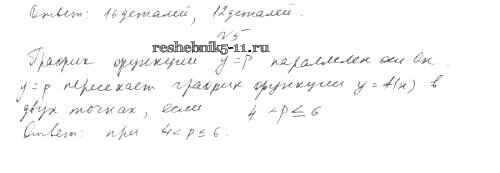 Ответ: 16 деталей, 12 деталей.
№5
reshebnik5-11.ru
График функции y=p параллелен оси Ox.
y=p пересекает график функции y=f(x) в
двух точках, если 4<p≤6
Ответ: при 4<p≤6.